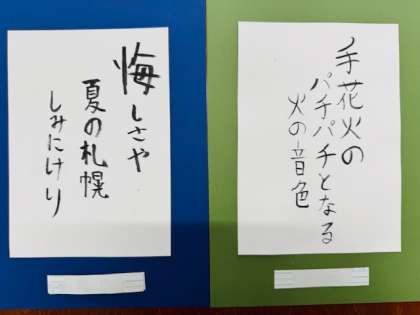 手花火の
パチパチとなる
火の音色
悔しさや
夏の札幌
しみにけり